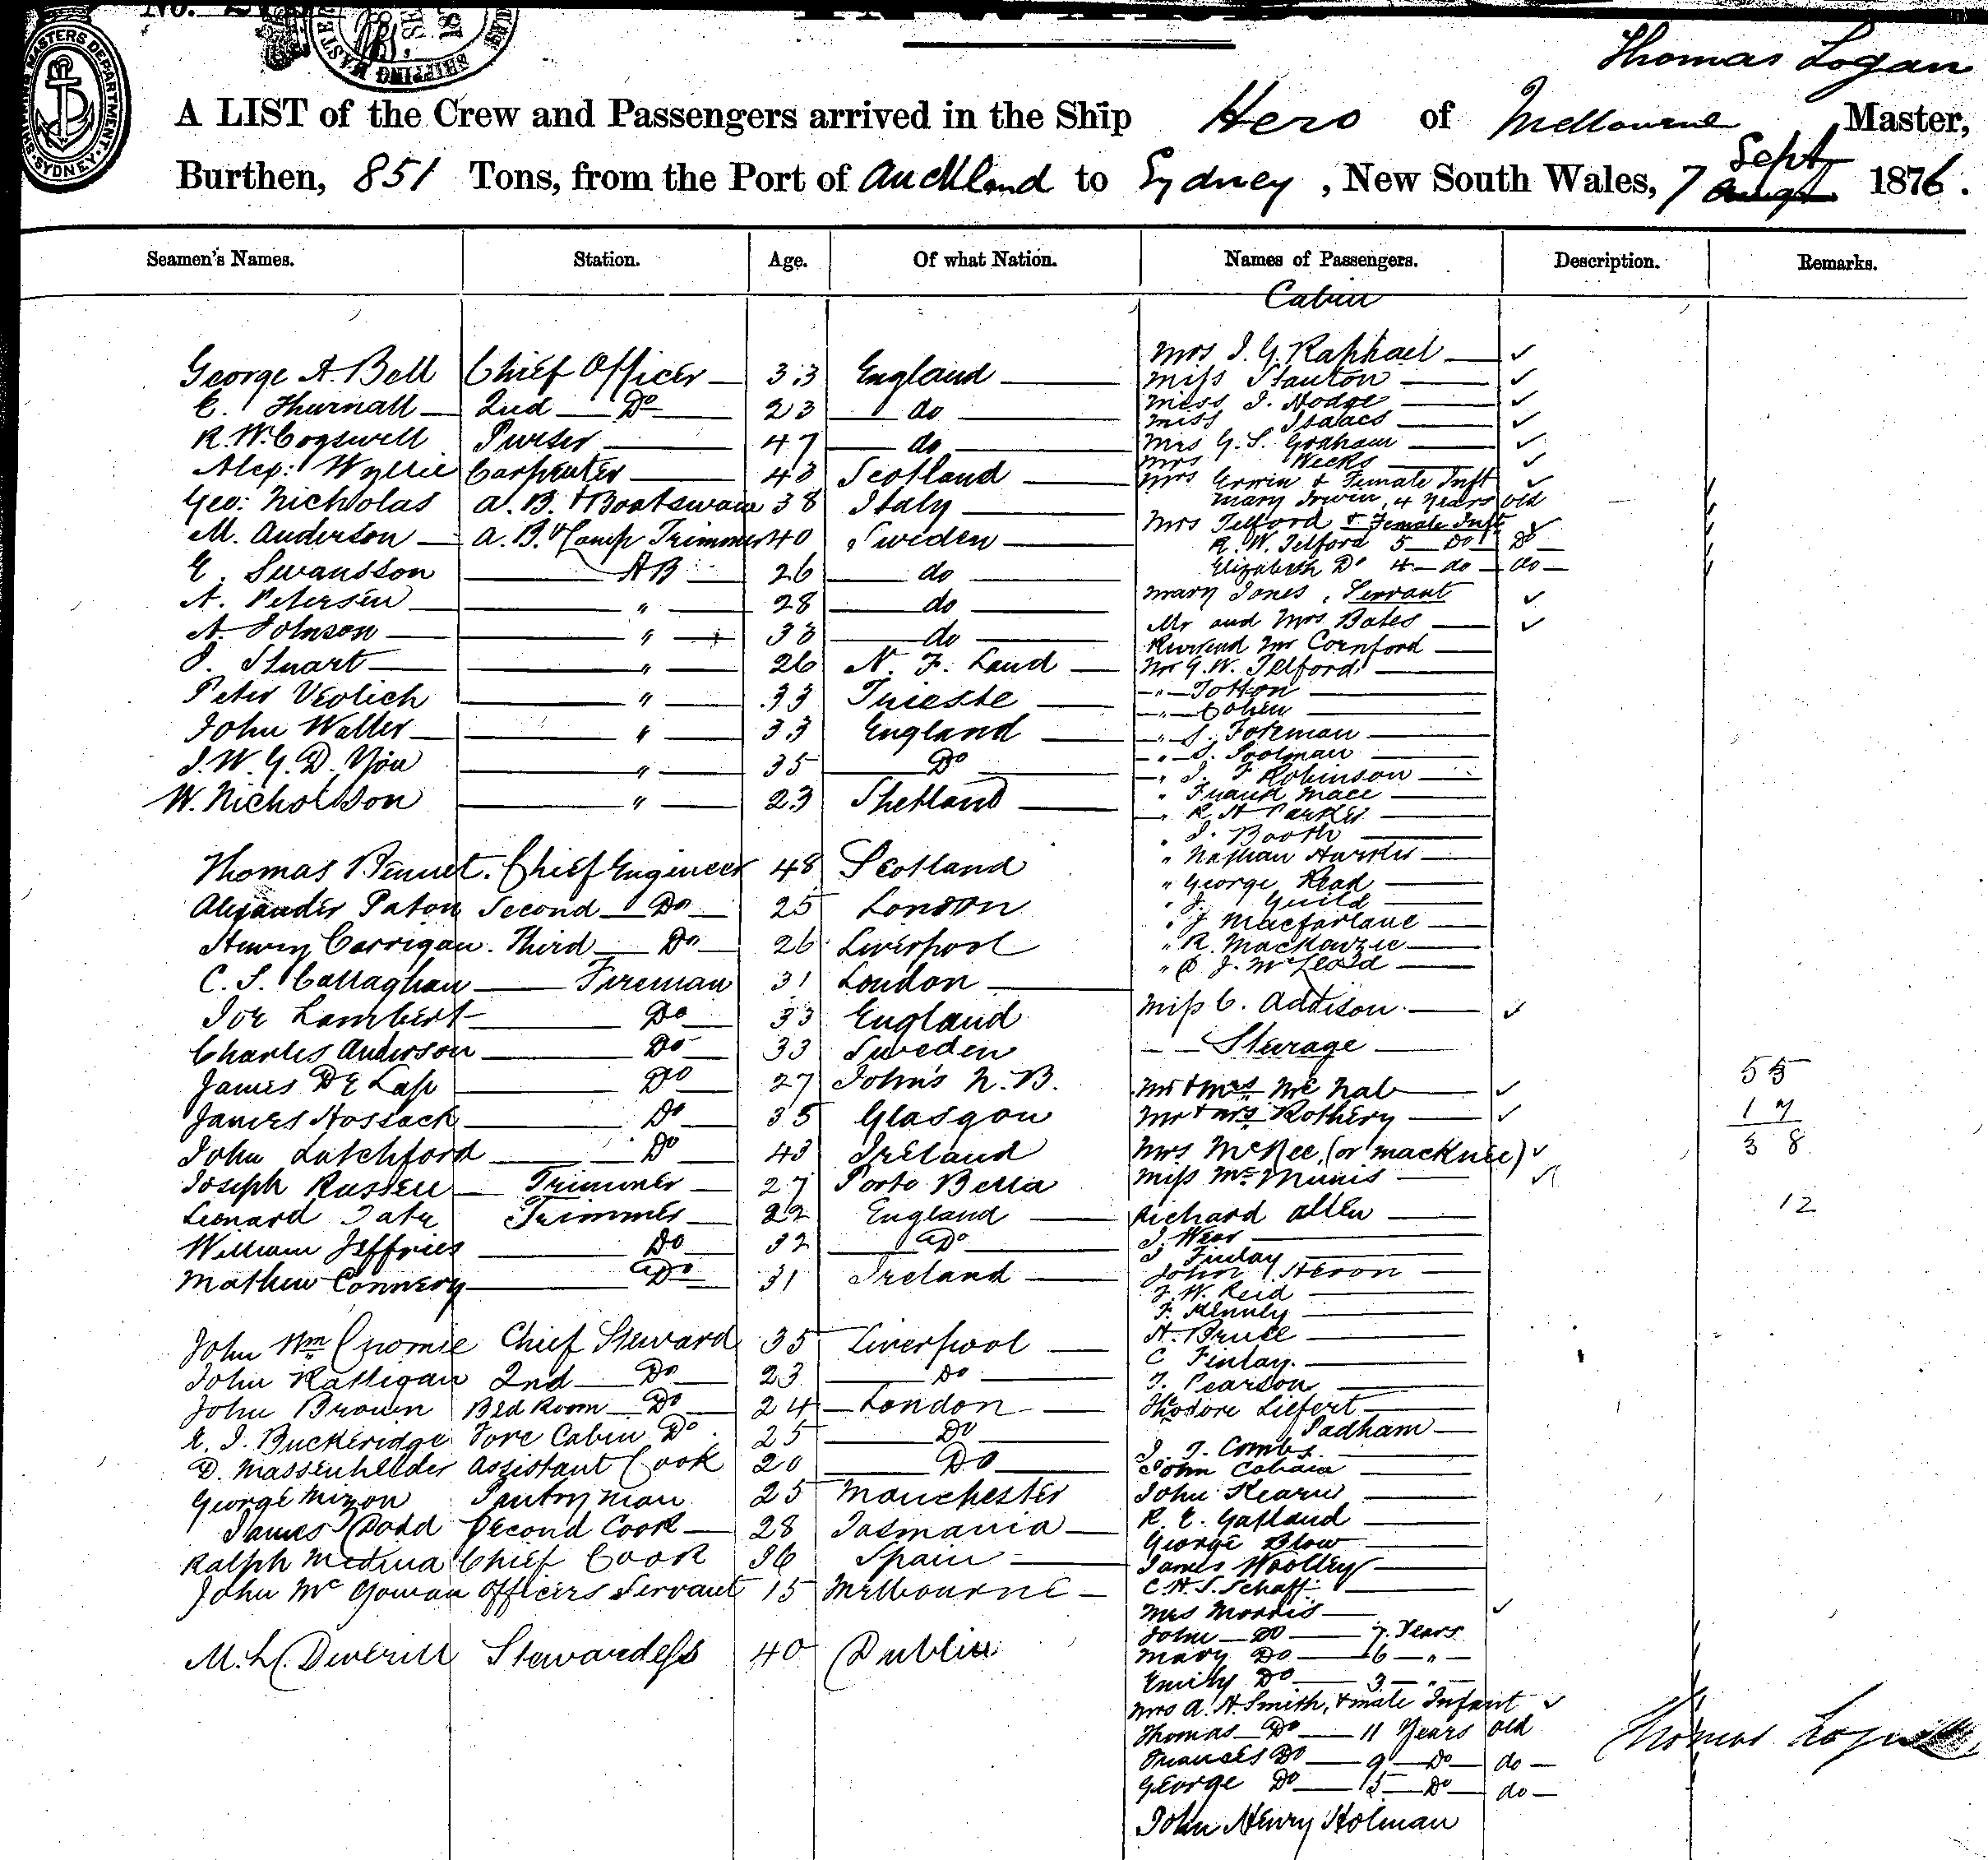 No.
SHIPPING MASTERS DEPARTMENT. SYDNEY.
SHIPPING MASTERS
Thomas Logan
A LIST of the Crew and Passengers arrived in the Ship Hero of Melbourne Master,
Burthen, 851 Tons, from the Port of Auckland to Sydney, New South Wales, 7 Sept 1876.
Seamen's Names. Station. Age. Of what Nation. Names of Passengers. Description. Remarks.
Cabin
George A. Bell Chief Officer 33 England
E. Thurnall 2nd Do 23 do
R. W. Cogswell Purser 47 do
Alex: Wyllie Carpenter 43 Scotland
Geo: Nicholas A. B. & Boatswain 38 Italy
M. Anderson A. B. & Lamp Trimmer 40 Sweden
E. Swansson AB 26 do
A. Petersen " 28 do
A. Johnson " 33 do
J. Stuart " 26 N. F. Land
Peter Verlich " 33 Trieste
John Walter " 33 England
J. W. G. D. " 35 Do
W. Nicholson " 23 Shetland
Thomas Bennet. Chief Engineer 48 Scotland
Alexander Paton Second Do 25 London
Henry Corrigan. Third Do 26 Liverpool
C. S. Callaghan Fireman 31 London
Joe Lambert Do 33 England
Charles Anderson Do 33 Sweden
James De Lap Do 27 John's N. B.
James Hossack Do 35 Glasgow
John Latchford Do 43 Ireland
Joseph Russell Trimmer 27 Porto Bella
Leonard Tate Trimmer 22 England
William Jeffries Do 32 Do
Mathew Connery Do 31 Ireland
John Wm Chief Steward 35 Liverpool
John Rattigan 2nd Do 23 Do
John Brown Bed Room Do 24 London
E. J. Buckeridge Fore Cabin Do. 25 Do
D. Assistant Cook 20 Do
George Mizon Pantryman 25 Manchester
James Dodd Second Cook 28 Tasmania
Ralph Medina Chief Cook 36 Spain
John McGowan Officers Servant 15 Melbourne
M. L. Deverill Stewardess 40 Dublin
Mrs J. G. Raphael
Miss Stanton
Miss J. Hodge
Miss Isaacs
Mrs G. S. Graham
Mrs Weeks
Mrs Erwin & Female Inft
Mary Irwin, 4 Years old
Mrs Telford & Female Inft
R. W. Telford 5 Do Do
Elizabeth Do 4 do do
Mary Jones, Servant
Mr and Mrs Bates
Reverend Mr Cornford
Mr G. W. Telford
" Totton
" Cohen
" S. Foreman
" S. Poolman
" J. F Robinson
" Frank Mace
" R. H Parker
" J. Booth
" Nathan
" George Read
" J. Guild
" J Macfarlane
" R. Mackenzie
" D J. McLeod
Miss C. Addison
Steerage
Mr & Mrs Mc Nab
Mr & Mrs Rothery
Mrs McKee, (or Macknee)
Miss Mc Minnis
Richard Allen
J. Weir
J Finlay
John Heron
J. W. Reid
F. Kennely
H. Bruce
C Finlay.
T. Pearson
Theodore Liefert
Padham
J. T. Combs
John
John Kearns
R. E. Gatland
George Blow
James Woolley
C. H. S. Schaff
Mrs Morris
John Do 7 Years
Mary Do 6 "
Emily Do 3 "
Mrs A. H. Smith, & male Infant
Thomas Do 11 Years old
Frances Do 9 Do do
George Do 5 Do do
John Henry Holman
55
17
38
12
Thomas Logan